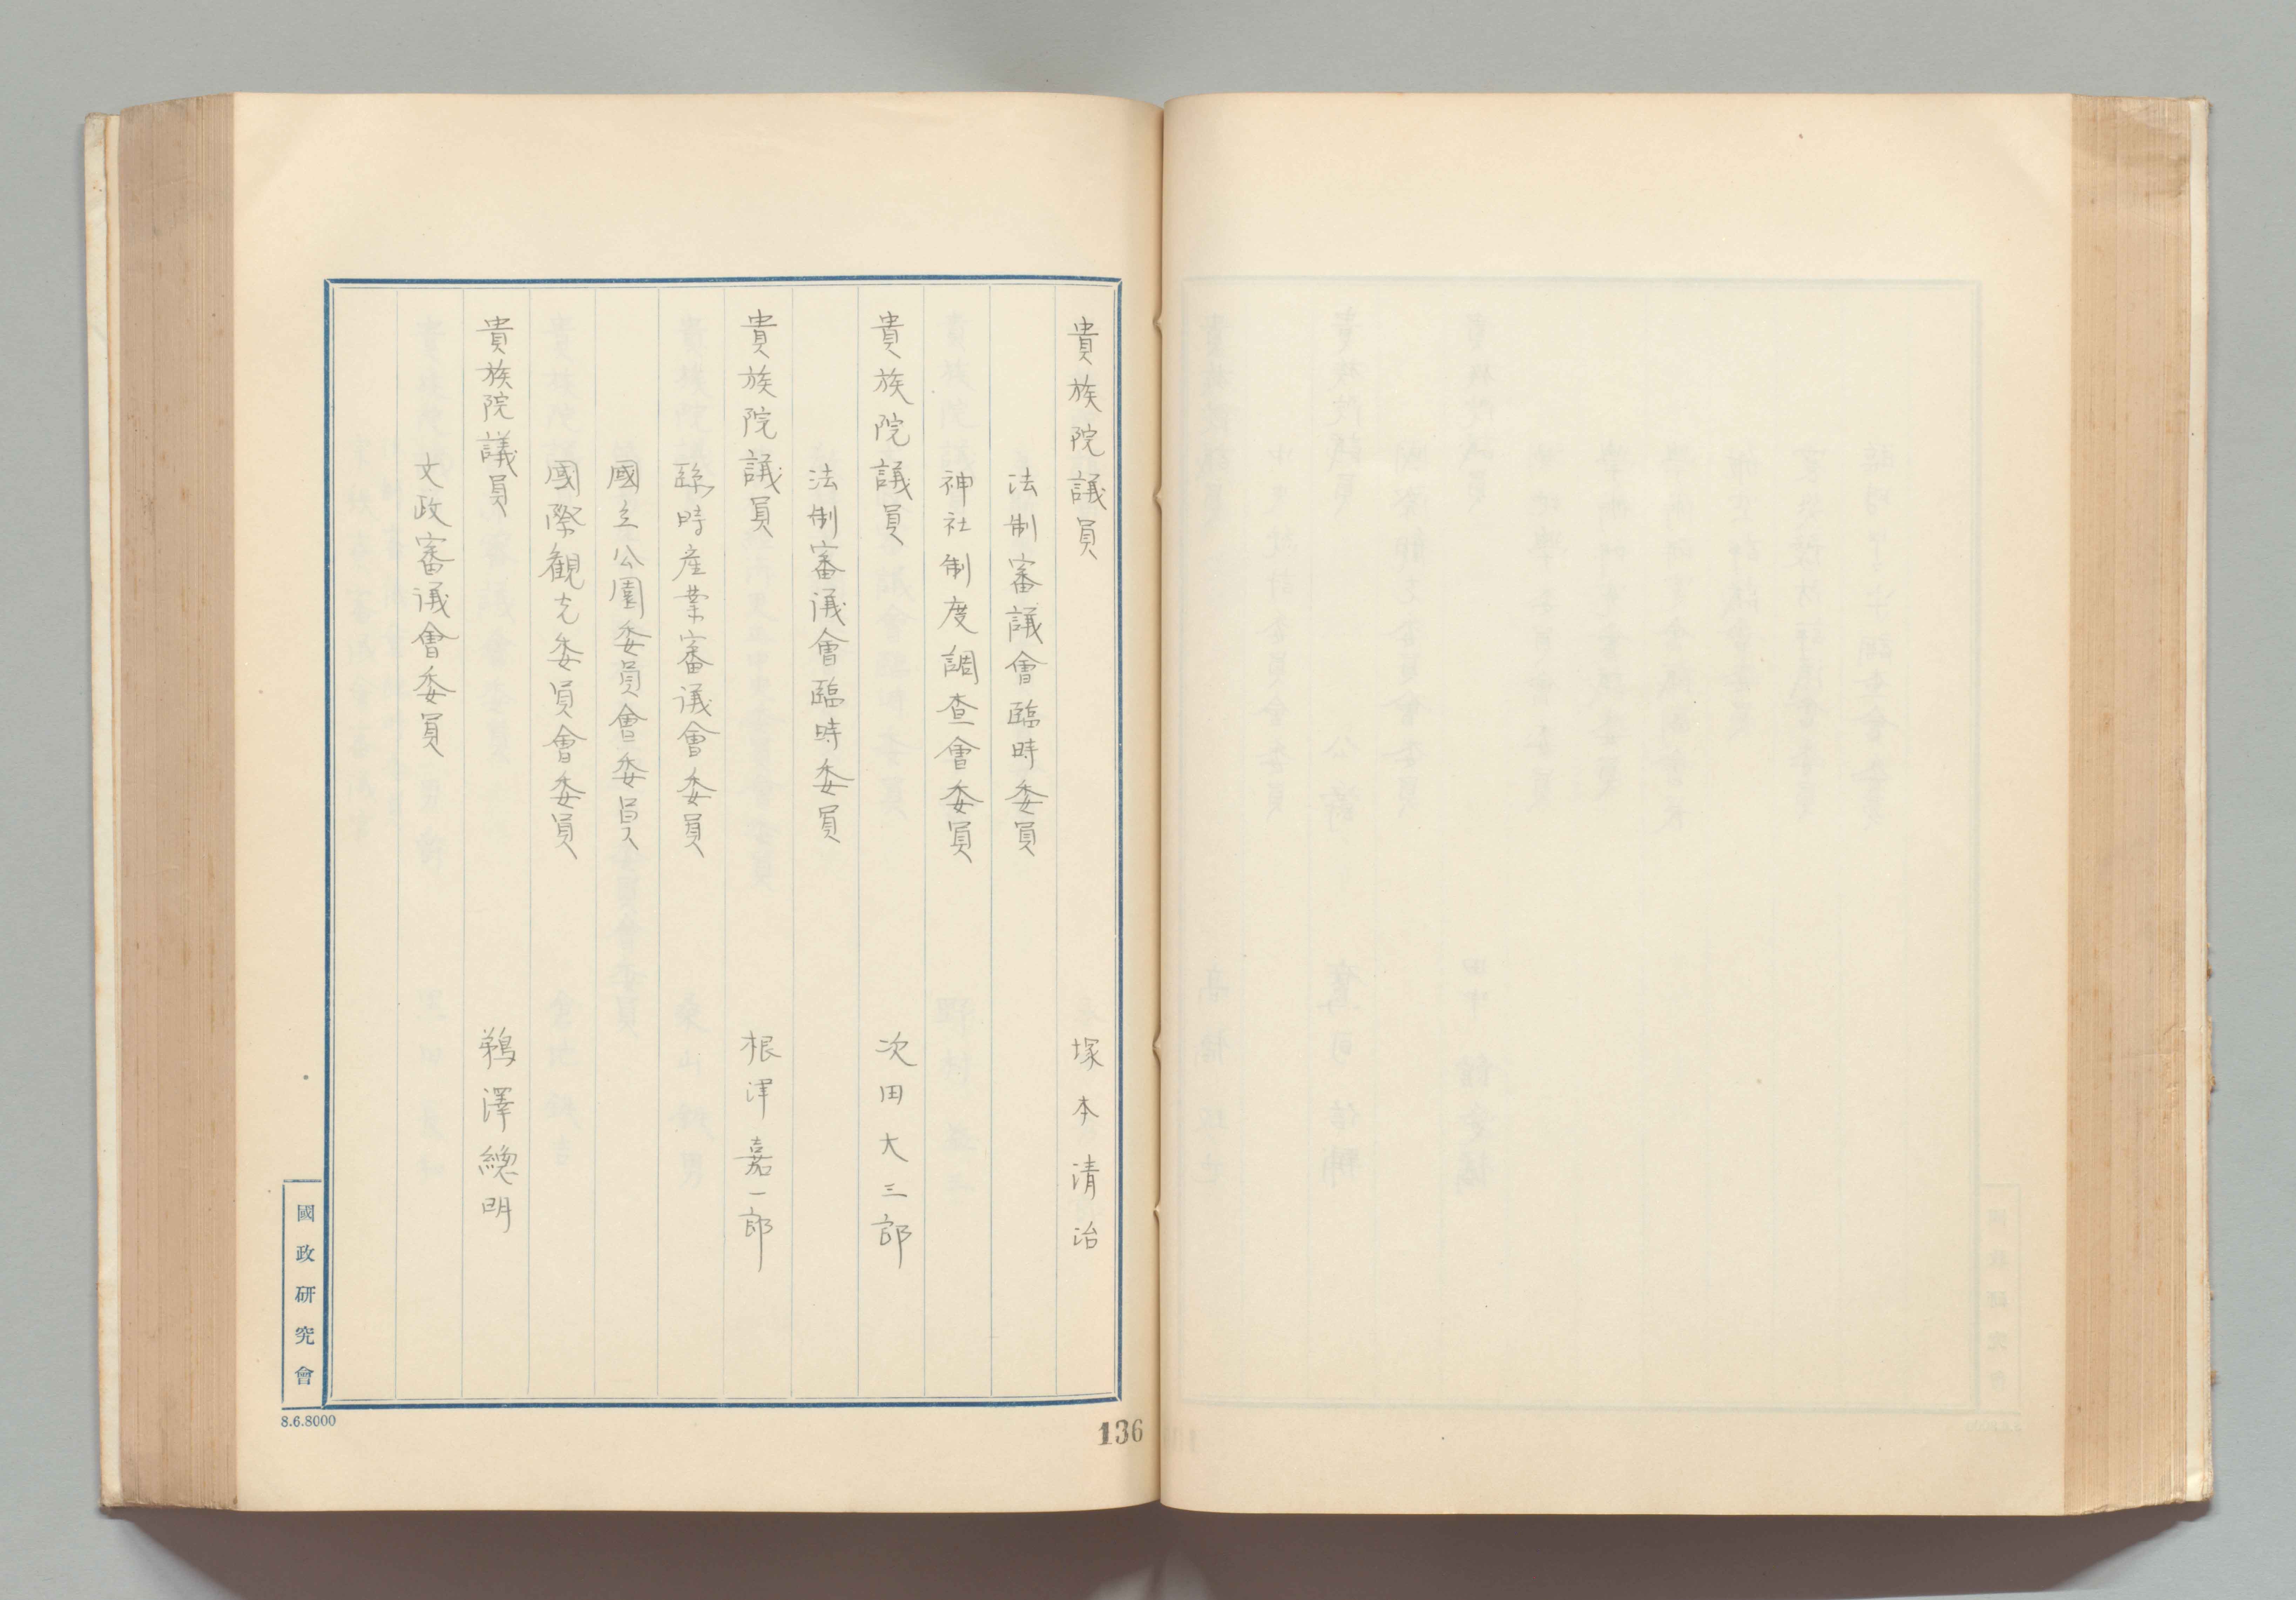 貴族院議員 塚本清治
法制審議會臨時委員
神社制度調查會委員
貴族院議員 次田大三郎
法制審議會臨時委員
貴族院議員 根津嘉一郎
臨時産業審議會委員
國立公園委員會委員
國際観光委員會委員
貴族院議員 鵜澤總明
文政審議會委員
國政研究會
8.6.8000
136